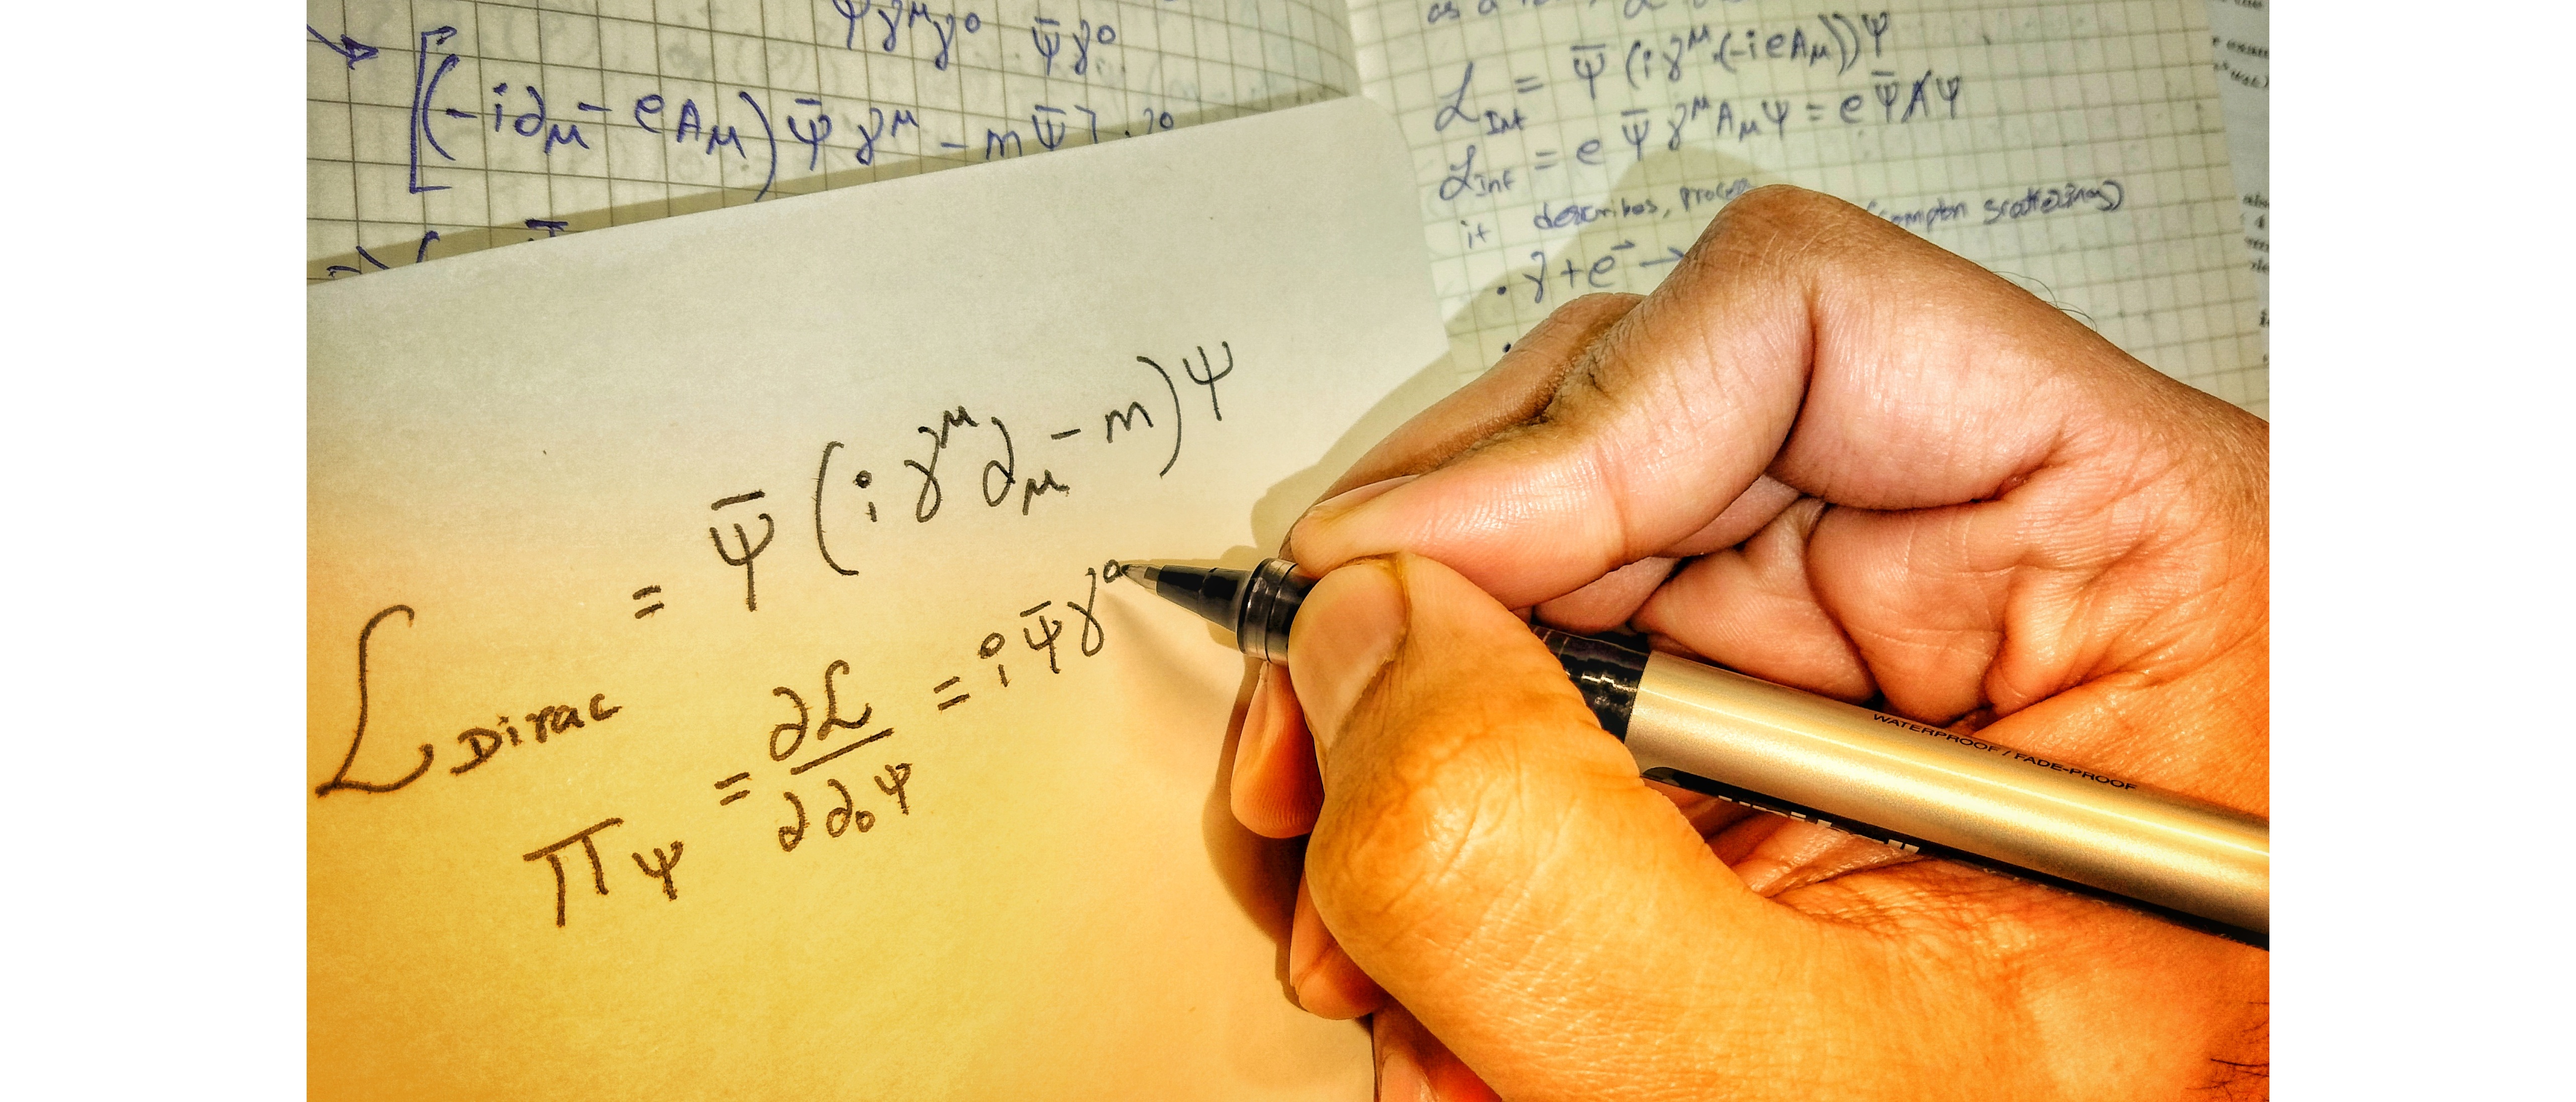 ψγ^μγ^0 ψ̄γ^0
[(-i∂_μ - eA_μ)ψ̄γ^μ - mψ̄].γ^0
as a
ℒ_Int = ψ̄(iγ^μ.(-ieA_μ))ψ
ℒ_Int = eψ̄γ^μA_μψ = eψ̄A̸ψ
it describes, (compton scattering)
• γ + e^- →
ℒ_Dirac = ψ̄(iγ^μ∂_μ - m)ψ
Π_ψ = ∂ℒ/∂∂_0ψ = iψ̄γ^0
WATERPROOF / FADE-PROOF